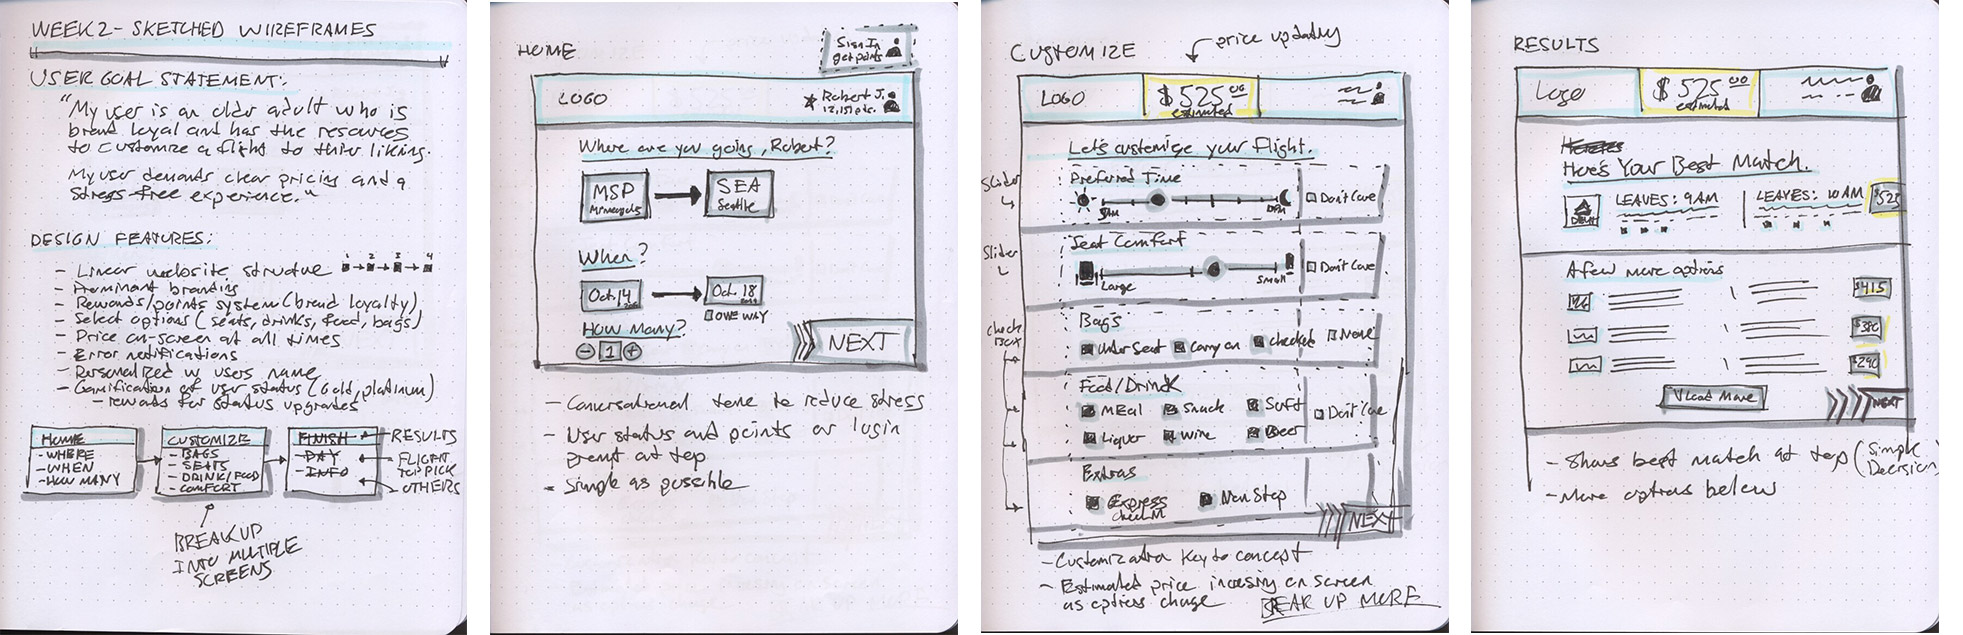 WEEK 2 - SKETCHED WIREFRAMES
USER GOAL STATEMENT:
"My user is an older adult who is
brand loyal and has the resources
to customize a flight to thier liking.
My user demands clear pricing and a
stress-free experience."
DESIGN FEATURES:
- Linear website structure 1 2 3 4
- Prominent branding
- Rewards/points system (brand loyalty)
- Select options (seats, drinks, food, bags)
- Price on-screen at all times
- Error notifications
- Personalized w users name
- Gamification of user status (Gold, platinum)
- rewards for status upgrades
HOME
- WHERE
- WHEN
- HOW MANY
CUSTOMIZE
- BAGS
- SEATS
- DRINK/FOOD
- COMFORT
FINISH
- DAY
- INFO
RESULTS
FLIGHT
TOP PICK
OTHERS
BREAK UP
INTO MULTIPLE
SCREENS
HOME
Sign In
get points
LOGO
Robert J.
12,151 pts.
Where are you going, Robert?
MSP
Minneapolis
SEA
Seattle
When?
Oct. 14
Oct. 18
ONE WAY
How Many?
- 1 +
NEXT
- Conversational tone to reduce stress
- User status and points or login
prompt at top
- Simple as possible
CUSTOMIZE
price updating
LOGO
$525.00
estimated
Let's customize your flight.
Slider
Preferred Time
5AM
Don't Care
Slider
Seat Comfort
Large
Small
Don't Care
Check
Box
Bags
Under Seat
Carry on
checked
None
Food/Drink
Meal
Snack
Soft
Don't Care
Liquor
Wine
Beer
Extras
Express
Check In
Non Stop
NEXT
- Customization key to concept
- Estimated price increasing on screen
as options change
BREAK UP MORE
RESULTS
Logo
$525.00
estimated
Here's Your Best Match.
DELTA
LEAVES: 9AM
LEAVES: 10AM
$525
A few more options
$415
$380
$290
Load More
NEXT
- Shows best match at top (Simple
Decision)
- More options below